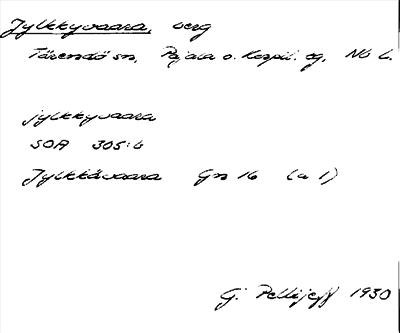 Jylkkyvaara, berg
Tärendö sn, Pajala o. Korpil. tg, Nb l.
jylkkyvaara
SOA 305:6
Jylkkävaara Gs 16 (a 1)
G. Pellijeff 1930